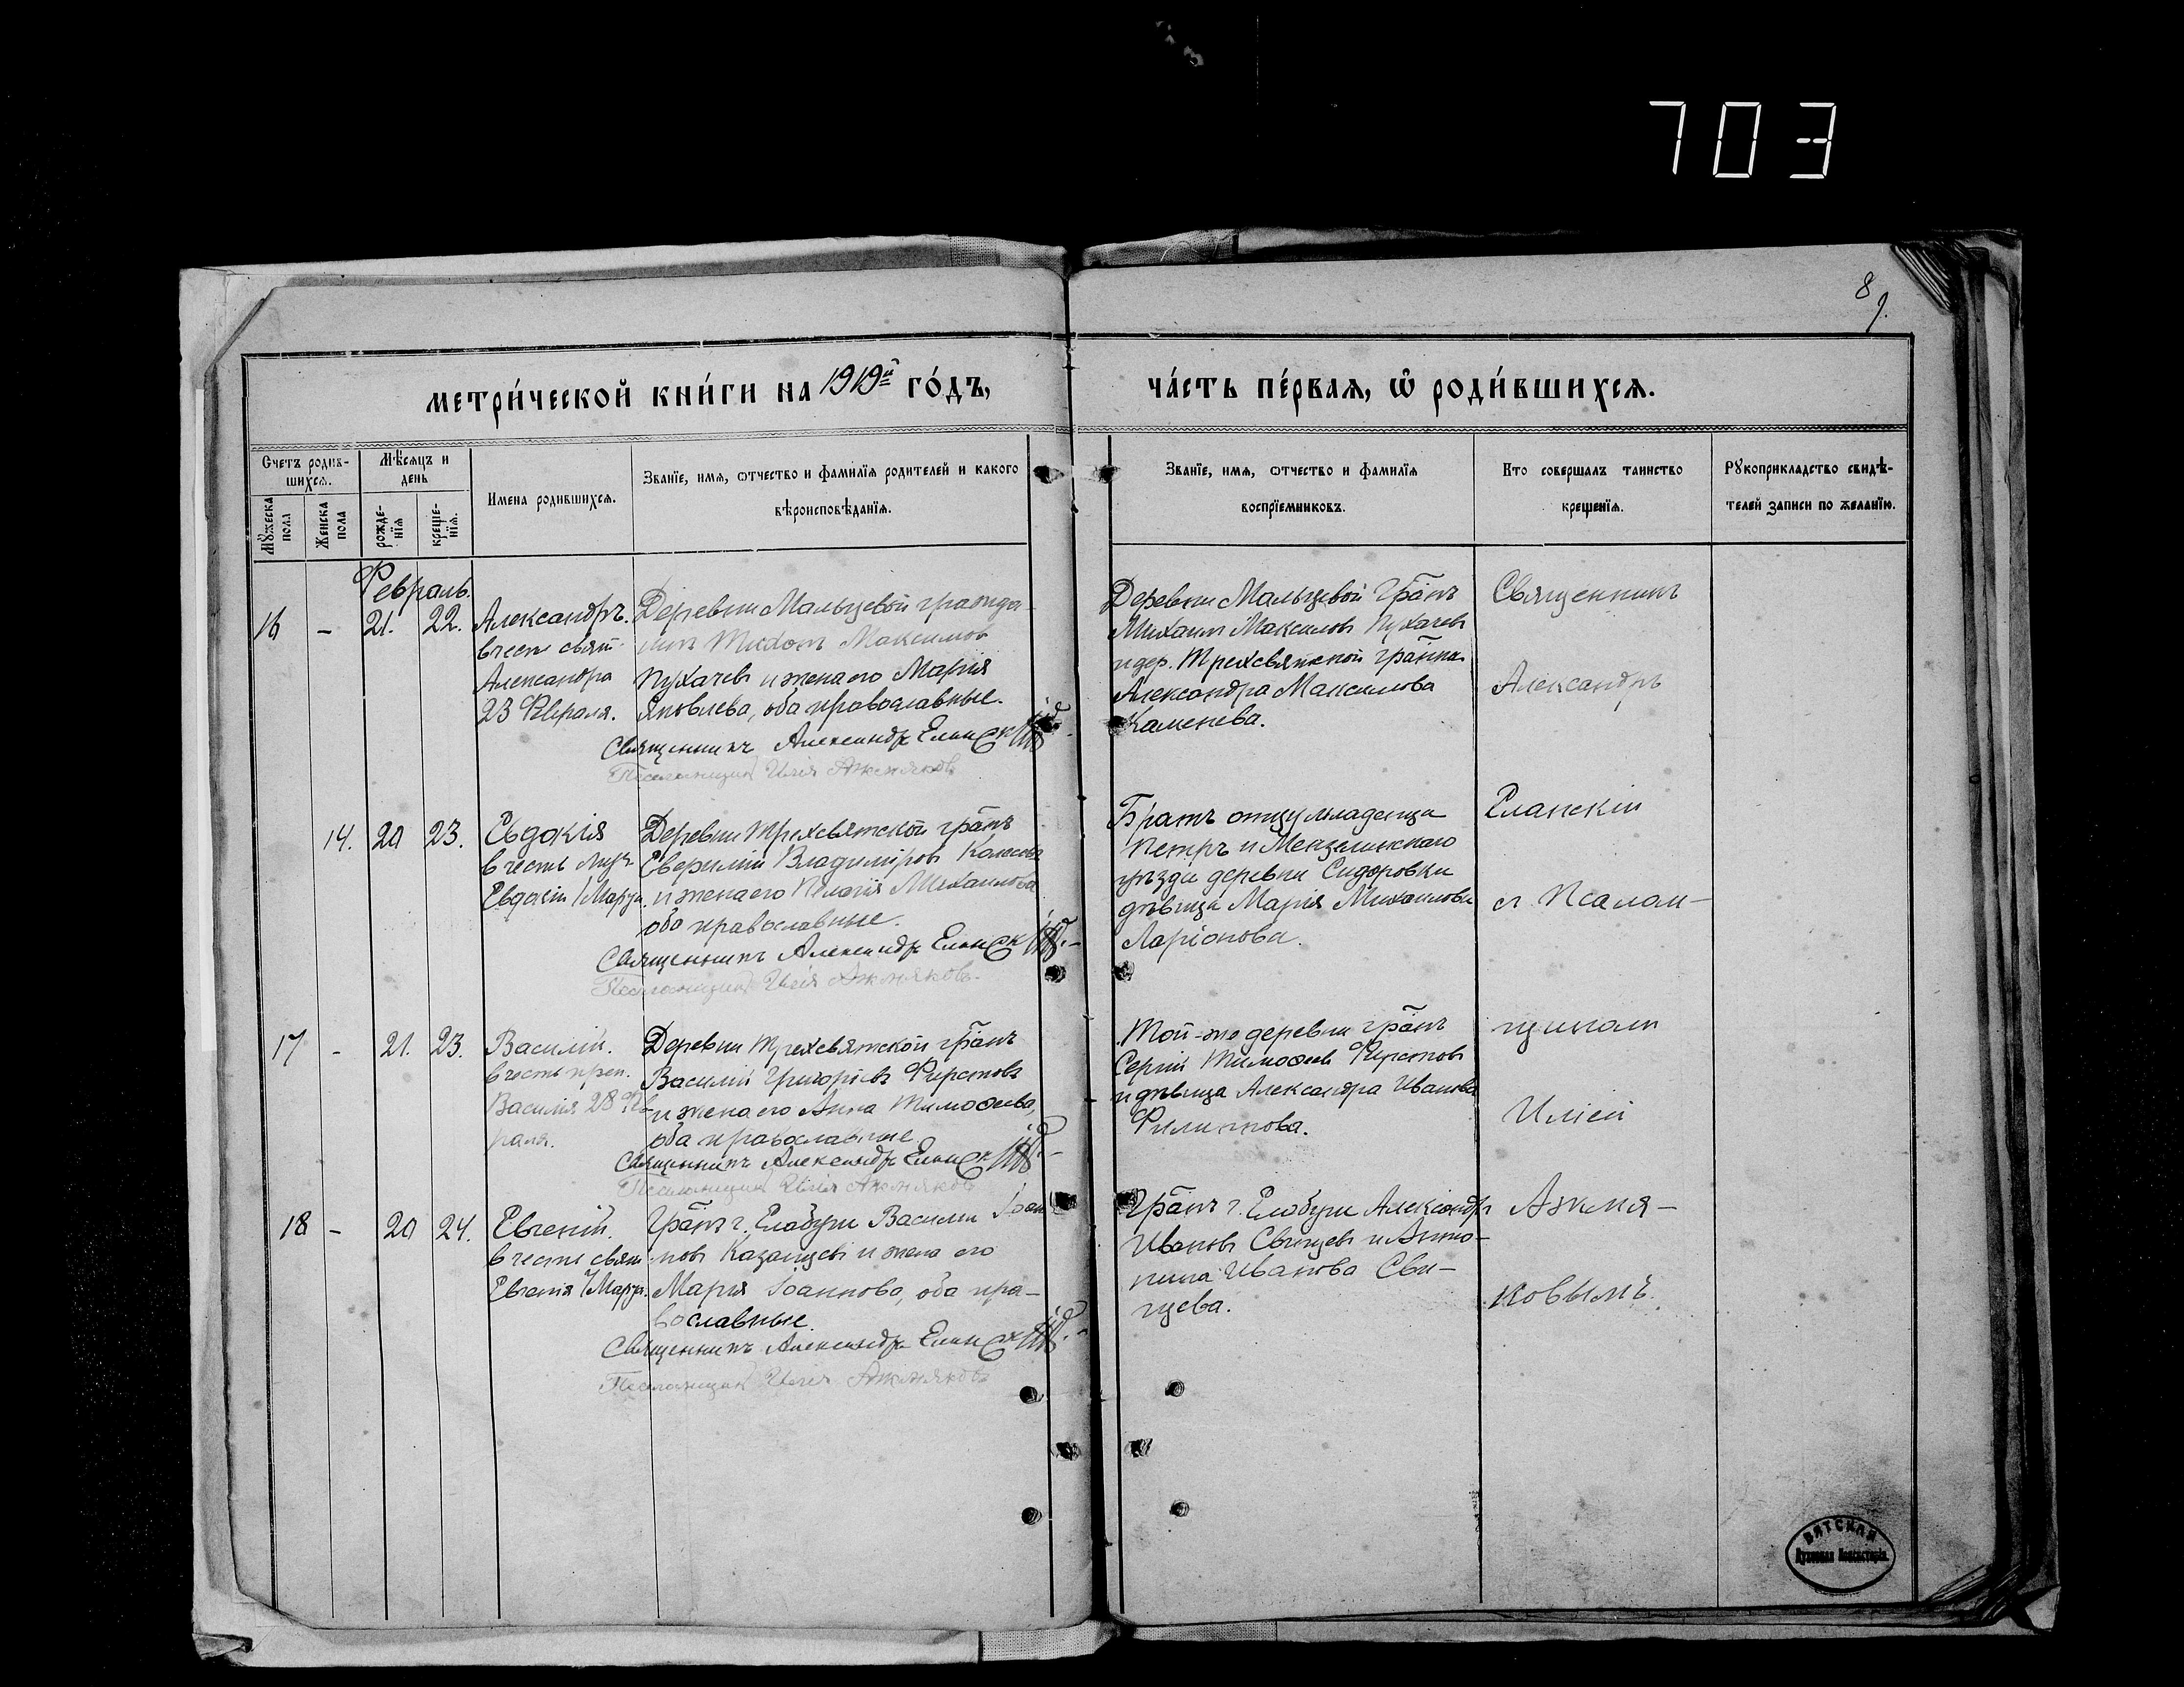 703
8
9.
метри́ческой кни́ги на 1919й го́дъ,
ча́сть пе́рвая, ѡ҆ роди́вшихся.
Счетъ родив-
шихся.
Мѣсяцъ и
день
Мꙋжеска
пола
Женска
пола
рожде-
нїя
креще-
нїя.
Имена родившихся.
Званїе, имя, ѿчество и фамилїя родителей и какого
вѣроисповѣданїя.
Званїе, имя, ѿчество и фамилїя
воспрїемниковъ.
Кто совершалъ таинство
крещенїя.
Рꙋкоприкладство свидѣ-
телей записи по желанїю.
Февраль.
16 – 21. 22.
Александръ.
в честь свят
Александра
23 Февраля.
Деревни Мальцевой гражда-
нинъ Максимов
Пухачев и жена его Мария
Яковлева, оба православные.
Священникъ Александръ Елан
Псаломщик Илія Ажмяков
Деревни Мальцевой Гр̃анъ
Михаил Максимов Пухачев
и дер. Трехсвятской гр̃анка
Александра Максимова
Каменева.
14. 20 23.
Евдокія
в честь муч.
Евдокіи 1 Марта.
Деревни Трехсвятской гр̃анъ
Владиміров
и жена его Пелагія Михаилова
оба православные.
Священникъ Александръ Елан
Псаломщик Илія Ажмяков.
Братъ отцу младенца
Петръ и Мензелинскаго
уѣзда деревни Сидоровки
дѣвица Марія Михаилова
Ларіонова.
17 – 21. 23.
Василій.
в честь преп.
Василія 28 Фев-
раля.
Деревни Трехсвятской гр̃анъ
Василій Григоріев Фирстов
и жена его Анна Тимоѳеева,
оба православные
Священникъ Александръ Елан
Псаломщик Илія Ажмяков
Той-же деревни гр̃анъ
Сергій Тимоѳеев Фирстов
и дѣвица Александра Иванова
Филипова.
18 – 20 24.
Евгеній.
в честь свят
Евгенія 7 Марта.
Гр̃анъ г. Елабуги Василій Іоан
нов Казанцев и жена его
Марія Іоаннова, оба пра-
вославные.
Священникъ Александръ Елан
Псаломщик Илія Ажмяков
Гр̃анъ г. Елабуги Александр
Иванов Свинцев и Анто-
нина Иванова Сви-
нцева.
Священникъ
Александръ
Еланскій
с Псалом-
щиком
Иліей
Ажмя-
ковымъ.
ВЯТСКАЯ
Духовная Консисторія.